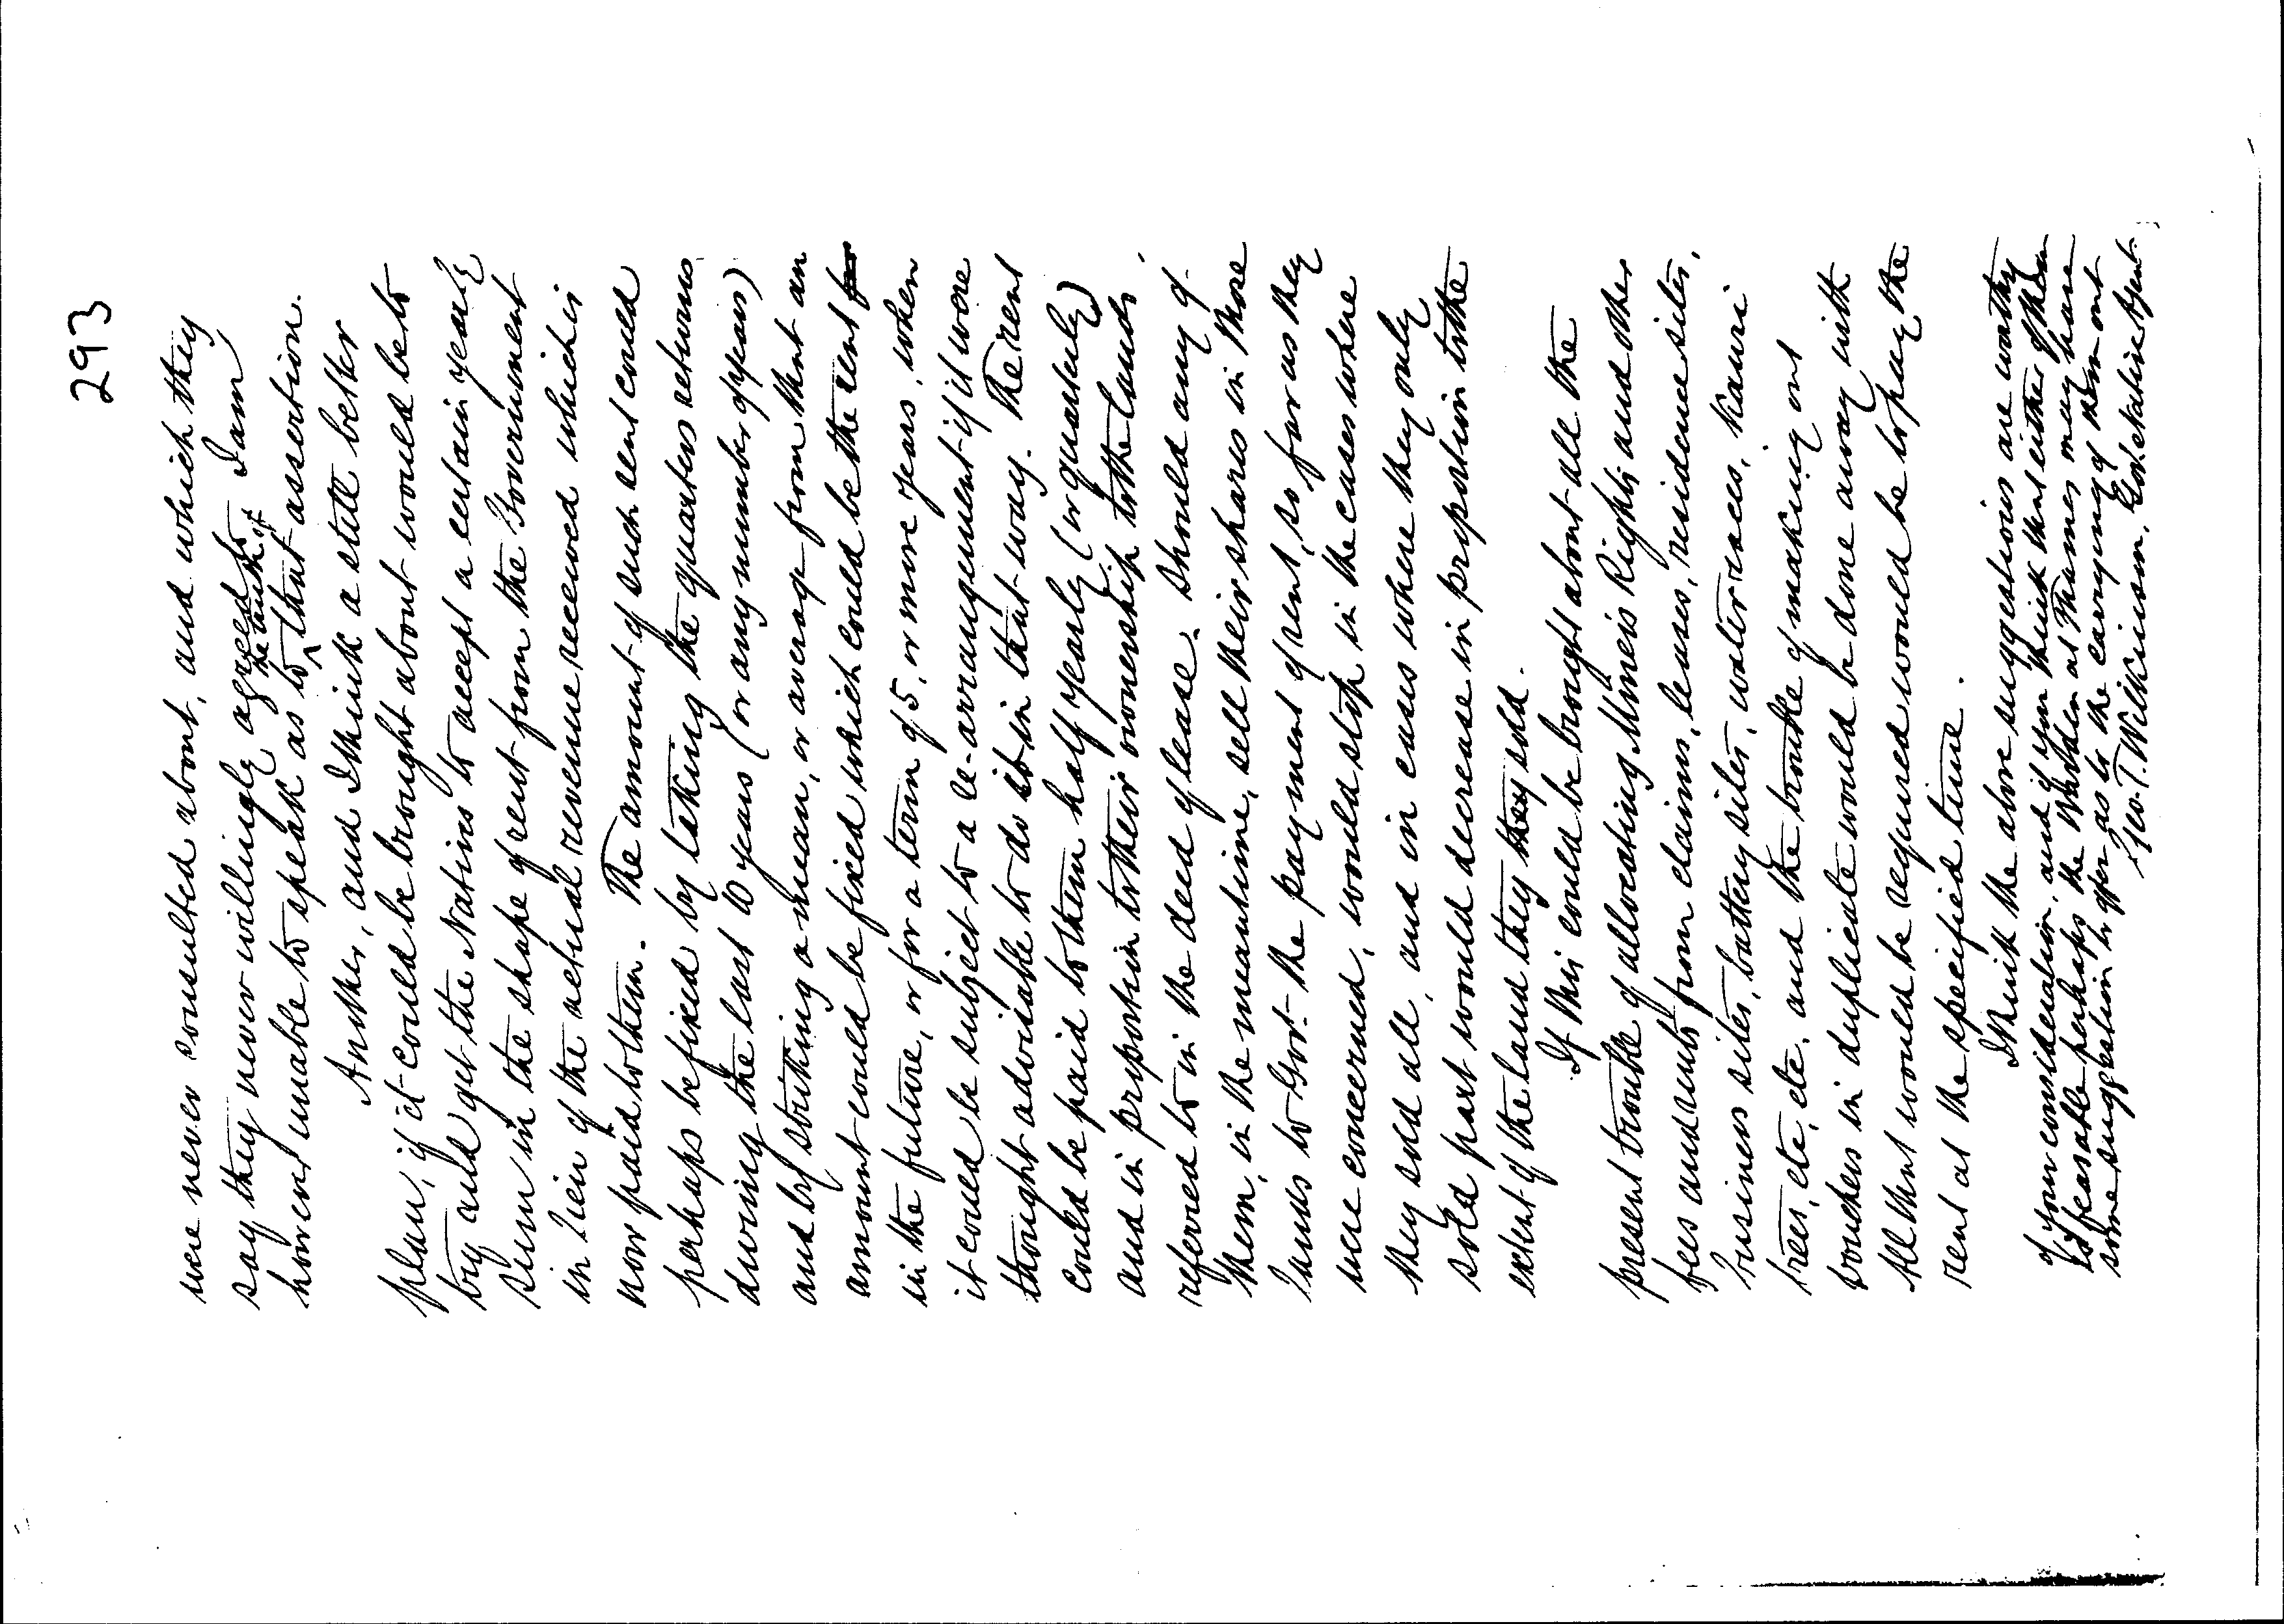 293
were never consulted about, and which they
say they never willingly agreed to. I am
however unable to speak as to the truth of that assertion.
Another, and I think a still better
plan, if it could be brought about would be to
try and get the Natives to accept a certain yearly
sum in the shape of rent from the Government
in lieu of the actual revenue received which is
now paid to them. The amount of such rent could
perhaps be fixed by taking the quarters returns
during the last 10 years (or any number of years)
and by striking a mean, or average from that an
amount could be fixed which could be the rent for
in the future, or for a term of 5, or more years, when
it could be subject to a re-arrangement if it were
thought advisable to do so in that way. The rent
could be paid to them half yearly (or quarterly)
and in proportion to their ownership to the lands
referred to in the deed of lease. Should any of
them, in the meantime, sell their shares in those
lands to Govt. the payment of rent, so far as they
were concerned, would stop in the cases where
they sold all, and in cases where they only
sold part would decrease in proportion to the
extent of the land they they sold.
If this could be brought about all the
present trouble of allocating Miners Rights and other
fees and rents from claims, leases, residence sites,
business sites, battery sites, water races, Kauri
trees, etc, etc, and the trouble of making out
vouchers in duplicate would be done away with
All that would be required would be to pay the
rent at the specified time.
I think the above suggestions are worthy
of your consideration, and if you think that either of them
is feasable perhaps the Warden at Thames may have
some suggestion to offer as to the carrying of them out
Geo. T. Wilkinson. Govt Native Agent.